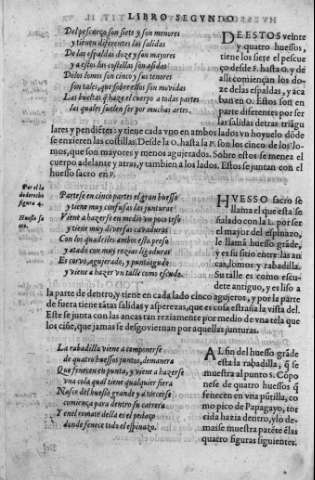 LIBRO SEGVNDO
Del pescueço son siete y son menores
y tienen diferentes las salidas
De las espaldas doze y son mayores
y a estos las costillas son asidas
Delos lomos son cinco y sus tenores
son tales, que sobre ellos son movidas
Las bueltas q̃ haze el cuerpo a todas partes
las quales suelen ser por muchas artes.
DE ESTOS veinte
y quatro huessos,
tiene los siete el pescue
ço desde la hasta o. y de
alli comiençan los do-
ze delas espaldas, y aca
ban en o. Estos son en
parte diferentes por ser
las salidas detras triãgu
lares y pendiẽtes: y tiene cada vno en ambos lados vn hoyuelo dõde
se enxieren las costillas. Desde la o. hasta la p. son los cinco de los lo-
mos, que son mayores y menos agujerados. Sobre estos se menea el
cuerpo adelante y atras, y tambien a los lados. Estos se juntan con el
huesso sacro en p.
Por el la
do derecho
figura 4.
Huesso sa
cro.
Partese en cinco partes el gran huesso
y tiene muy confusas las junturas
Viene a hazerse en medio vn poco teso
y tiene muy diversas cavaduras
Con los quadriles ambos esta preso
y atado con muy rezias ligaduras
Es corvo, agujerado, y puntiagudo
y viene a hazer vn talle como escudo.
HVESSO sacro se
llama el que esta se
ñalado con la p. por ser
el mayor del espinazo,
le llamã huesso grãde,
y es su sitio entre las an
cas, lomos y rabadilla.
Su talle es como escu-
dete antiguo, y es liso a
la parte de dentro, y tiene en cada lado cinco agujeros, y por la parte
de fuera tiene tãtas salidas y asperezas, que es cosa estraña la vista del.
Este se junta con las ancas tan reziamente por medio de vna tela que
los ciñe, que jamas se desgoviernan por aquellas junturas.
La rabadilla viene a componerse
de quatro huessos juntos, de manera
Que fenecen en punta, y viene a hazerse
vna cola qual tiene qualquier fiera
Nasce del huesso grande y a torcerse
comiença para dentro su carrera
Y en el remate della es el pedaço
donde fenece todo el espinazo.
AL fin del huesso grãde
esta la rabadilla, q̃ se
muestra al punto s. Cópo
nese de quatro huessos q̃
fenecen en vna pũtilla, co
mo pico de Papagayo, tor
cida hazia dentro, y lo de-
mas se muestra patẽte élas
quatro figuras siguientes.